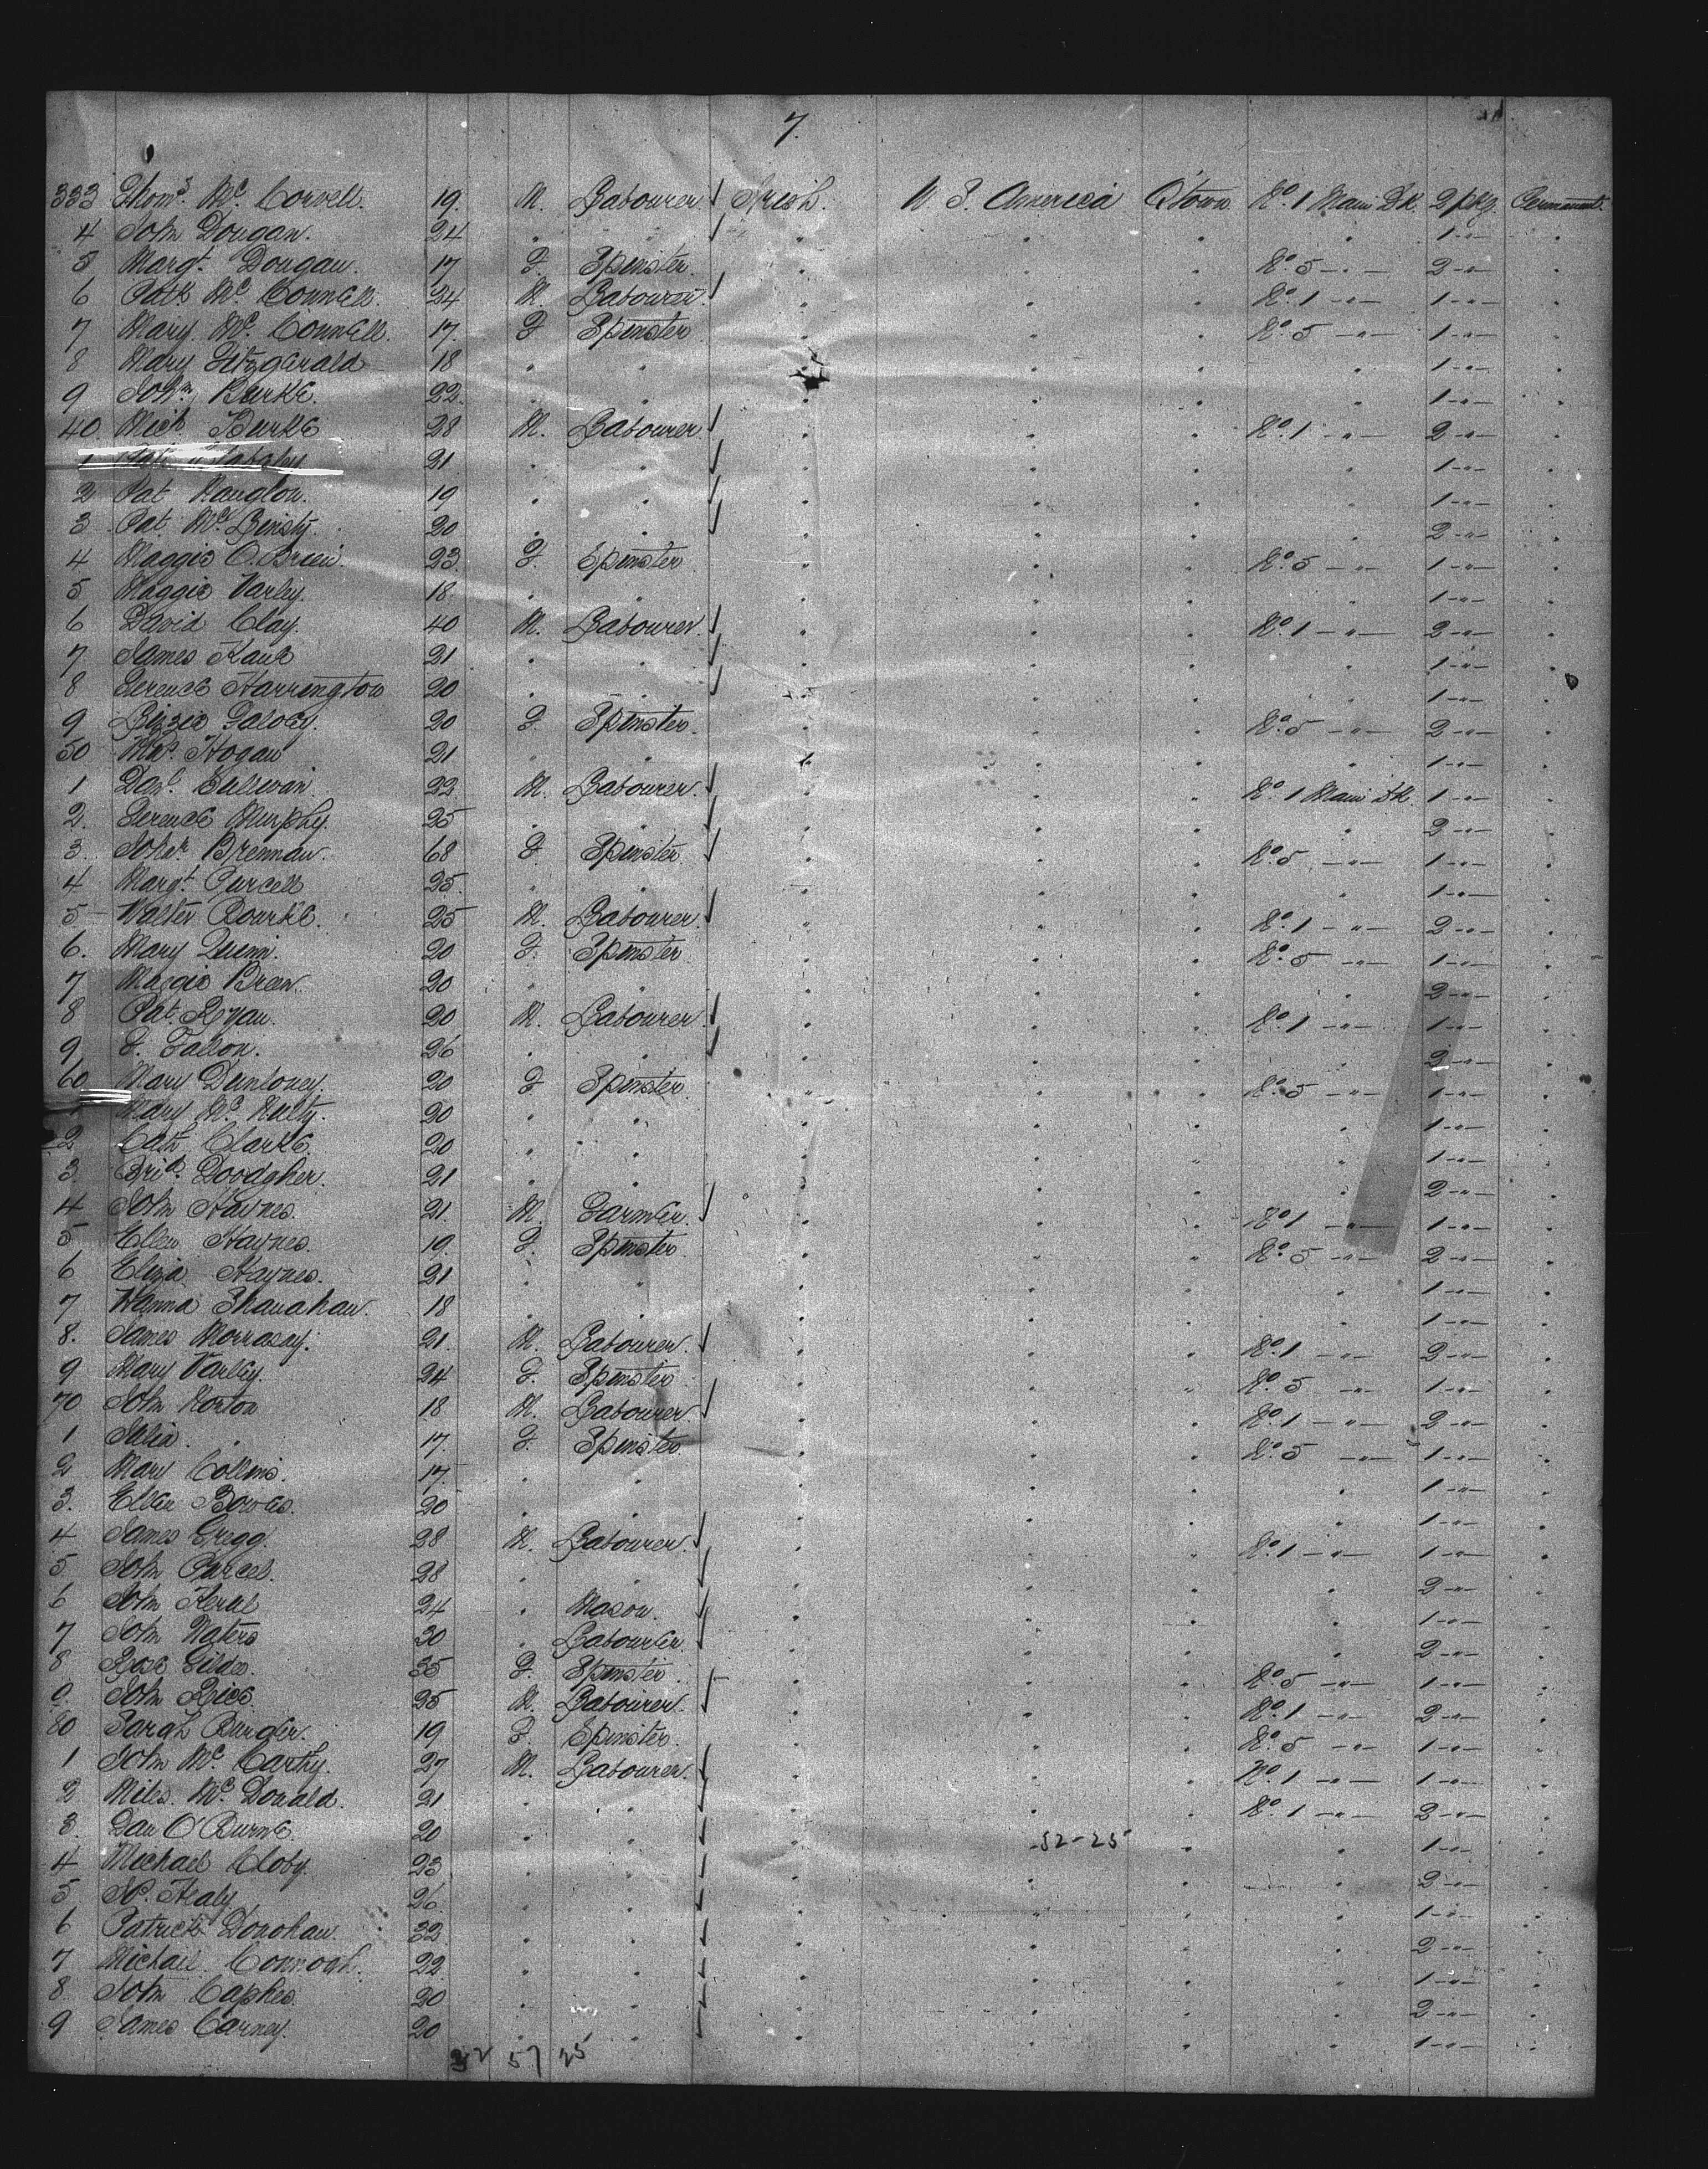 7.
333 Thoms. Mc. Corvell. 19. M. Labourer Irish. U S. America Qtown No. 1 Main Dk. 2 pkg. Permanent.
4 John Dougan. 24 " " " " " " 1 -"- "
5 Margt. Dougan. 17 F. Spinster. " " " No. 5 -"- 2 -"- "
6 Patk Mc. Connell. 24 M. Labourer. " " " No. 1 -"- 1 -"- "
7 Mary Mc. Connell. 17. F Spinster " " " No. 5 -"- 1 -"- "
8 Mary Fitzgerald 18 " " " " " " 1 -"- "
9 John. Burke. 22. " " " " " " 1 -"- "
40 Mich Burke 28 M. Labourer " " " No. 1 -"- 2 -"- "
1 21 " " " " " " 1 -"- "
2 Pat Hanglon. 19 " " " " " " 1 -"- "
3 Pat. Mc. 20 " " " " " " 2 -"- "
4 Maggie O.Brien. 23. F. Spinster " " " No. 5 -"- 1 -"- "
5 Maggie Varley. 18. " " " " " " 1 -"- "
6 David Clay. 40 M. Labourer. " " " No. 1 -"- 2 -"- "
7 James Kane 21 " " " " " " 1 -"- "
8 Terence Harrington 20 " " " " " " 1 -"- "
9 Lizzie Galvey. 20 F. Spinster. " " " No. 5 -"- 2 -"- "
50 Mrs. Hogan 21 " " " " " " 1 -"- "
1 Danl. Sullivan. 22 M. Labourer. " " " No. 1 Main Dk. 1 -"- "
2. Terence Murphy. 25 " " " " " " 2 -"- "
3. Johr. Brennan. 68 F. Spinster. " " " No. 5 -"- 1 -"- "
4 Margt. Purcell 25. " " " " " " 1 -"- "
5 Walter Rourke. 25 M. Labourer. " " " No. 1 -"- 2 -"- "
6. Mary Quinn. 20 F. Spinster " " " No. 5 -"- 1 -"- "
7 Maggie Breen. 20 " " " " " " 2 -"- "
8 Pat. Ryan. 20 M. Labourer. " " " No. 1 -"- 1 -"- "
9 F. Fallon. 26 " " " " " " 2 -"- "
60 Mary Dunloney. 20 F Spinster. " " " No. 5 -"- 1 -"- "
Mary Mc. Nulty. 20 " " " " " " 1 -"- "
2 Cath Clarke. 20 " " " " " " 1 -"- "
3. Brid. Doodgher. 21 " " " " " " 2 -"- "
4 John Haynes. 21. M. Farmer. " " " No. 1 -"- 1 -"- "
5 Ellen Haynes. 19. F. Spinster " " " No. 5 -"- 2 -"- "
6 Eliza Haynes. 21 " " " " " " 1 -"- "
7 Hanna Shanahan. 18 " " " " " " 1 -"- "
8. James Morrasay. 21. M. Labourer. " " " No. 1 -"- 2 -"- "
9 Mary Varley. 24 F. Spinster " " " No. 5 -"- 1 -"- "
70 John Horton 18 M. Labourer. " " " No. 1 -"- 2 -"- "
1 Selia. " 17. F. Spinster. " " " No. 5 -"- 1 -"- "
2 Mary Collins. 17. " " " " " " 1 -"- "
3. Ellen Bowes. 20 " " " " " " 1 -"- "
4 James Gregg. 28 M. Labourer. " " " No. 1 -"- 1 -"- "
5 John Purcel. 28 " " " " " " 2 -"- "
6 John 24 " Mason. " " " " 1 -"- "
7 John Waters 30 " Labourer. " " " " 2 -"- "
8 Rose Gildes. 35 F. Spinster. " " " No. 5 -"- 1 -"- "
9. John Rice. 25 M. Labourer. " " " No. 1 -"- 2 -"- "
80 Sarah Burger. 19 F. Spinster. " " " No. 5 -"- 1 -"- "
1 John Mc. Carthy. 27 M. Labourer. " " " No. 1 -"- 1 -"- "
2 Miles. Mc. Donald. 21 " " " " " No. 1 -"- 2 -"- "
3. Dan O'Burne. 20 " " " 52-25 " " 1 -"- "
4 Michael Cloby. 23 " " " " " " 2 -"- "
5 Healy 26 " " " " " " 1 -"- "
6 Patrick Donohan. 32 " " " " " " 2 -"- "
7 Michael. Connoah. 22. " " " " " " 1 -"- "
8 John Caphes. 20 " " " " " " 2 -"- "
9 James Carney. 20 " " " " " " 1 -"- "
32 57 25